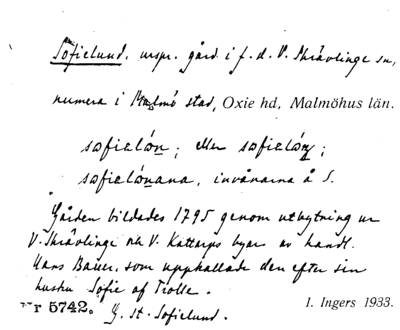 Sofielund, urspr. gård i f. d. V. Skrävlinge sn,
numera i Malmö stad, Oxie hd, Malmöhus län.
sofielón; eller sofielón;
sofielónana, invånarna å S.
Gården bildades 1795 genom utbytning ur
V. Skrävlinge och V. Kattarps byar av handl.
Hans Bauer, som uppkallade den efter sin
hustru Sofie af Trolle.
r 5742. G. st. Sofielund. I. Ingers 1933.